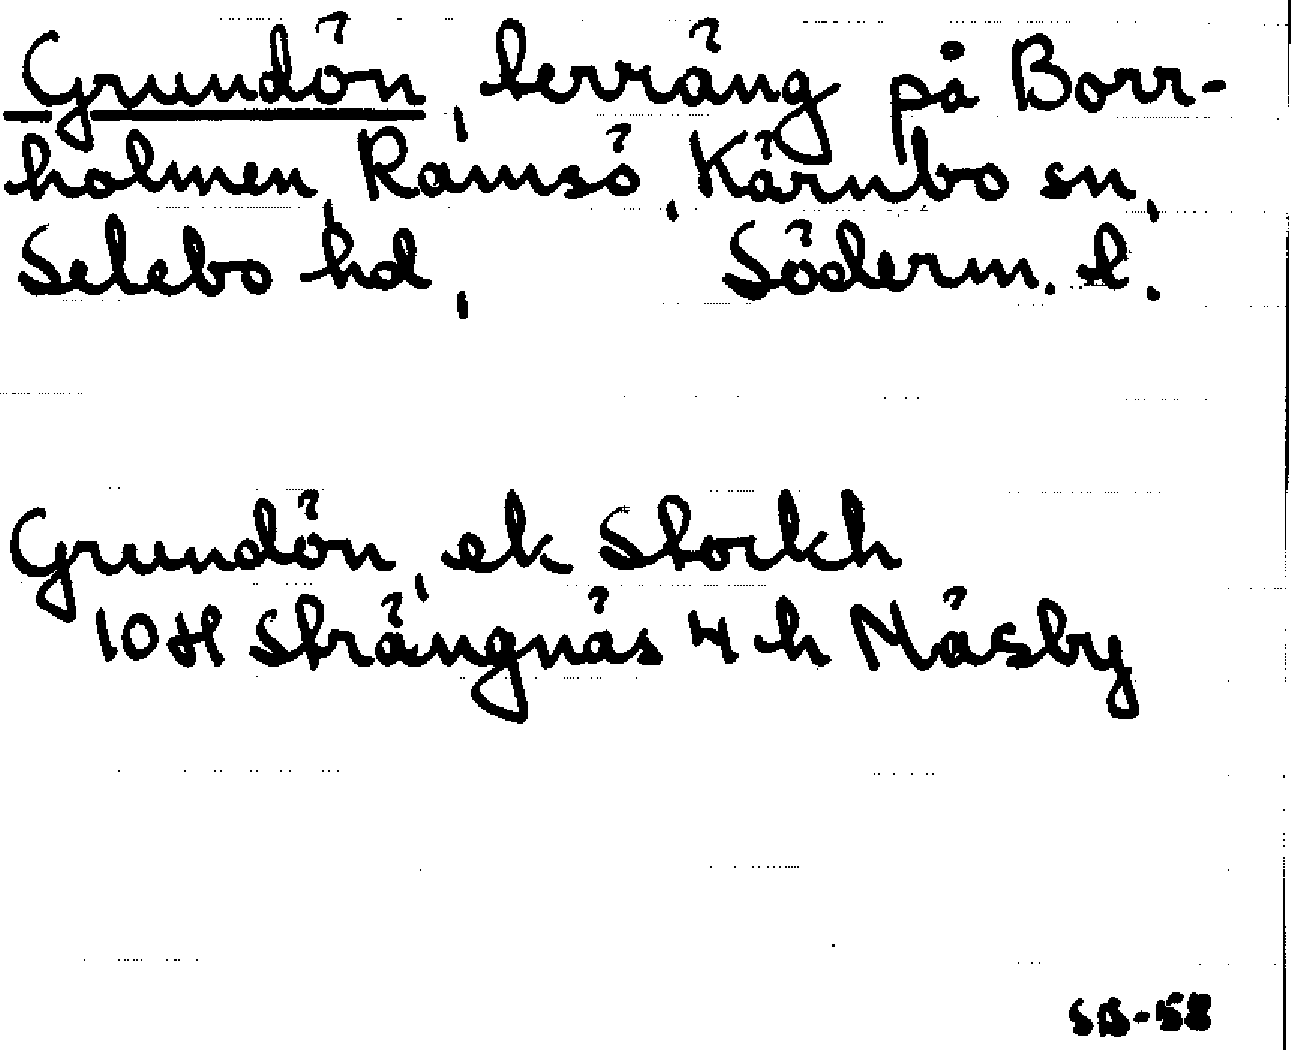 Grundön, terräng på Borr-
holmen, Ramsö, Kärnbo sn,
Selebo hd, Söderm. l.
Grundön, ek Storkh
10H Strängnäs 4 h Mäsby
SB-58